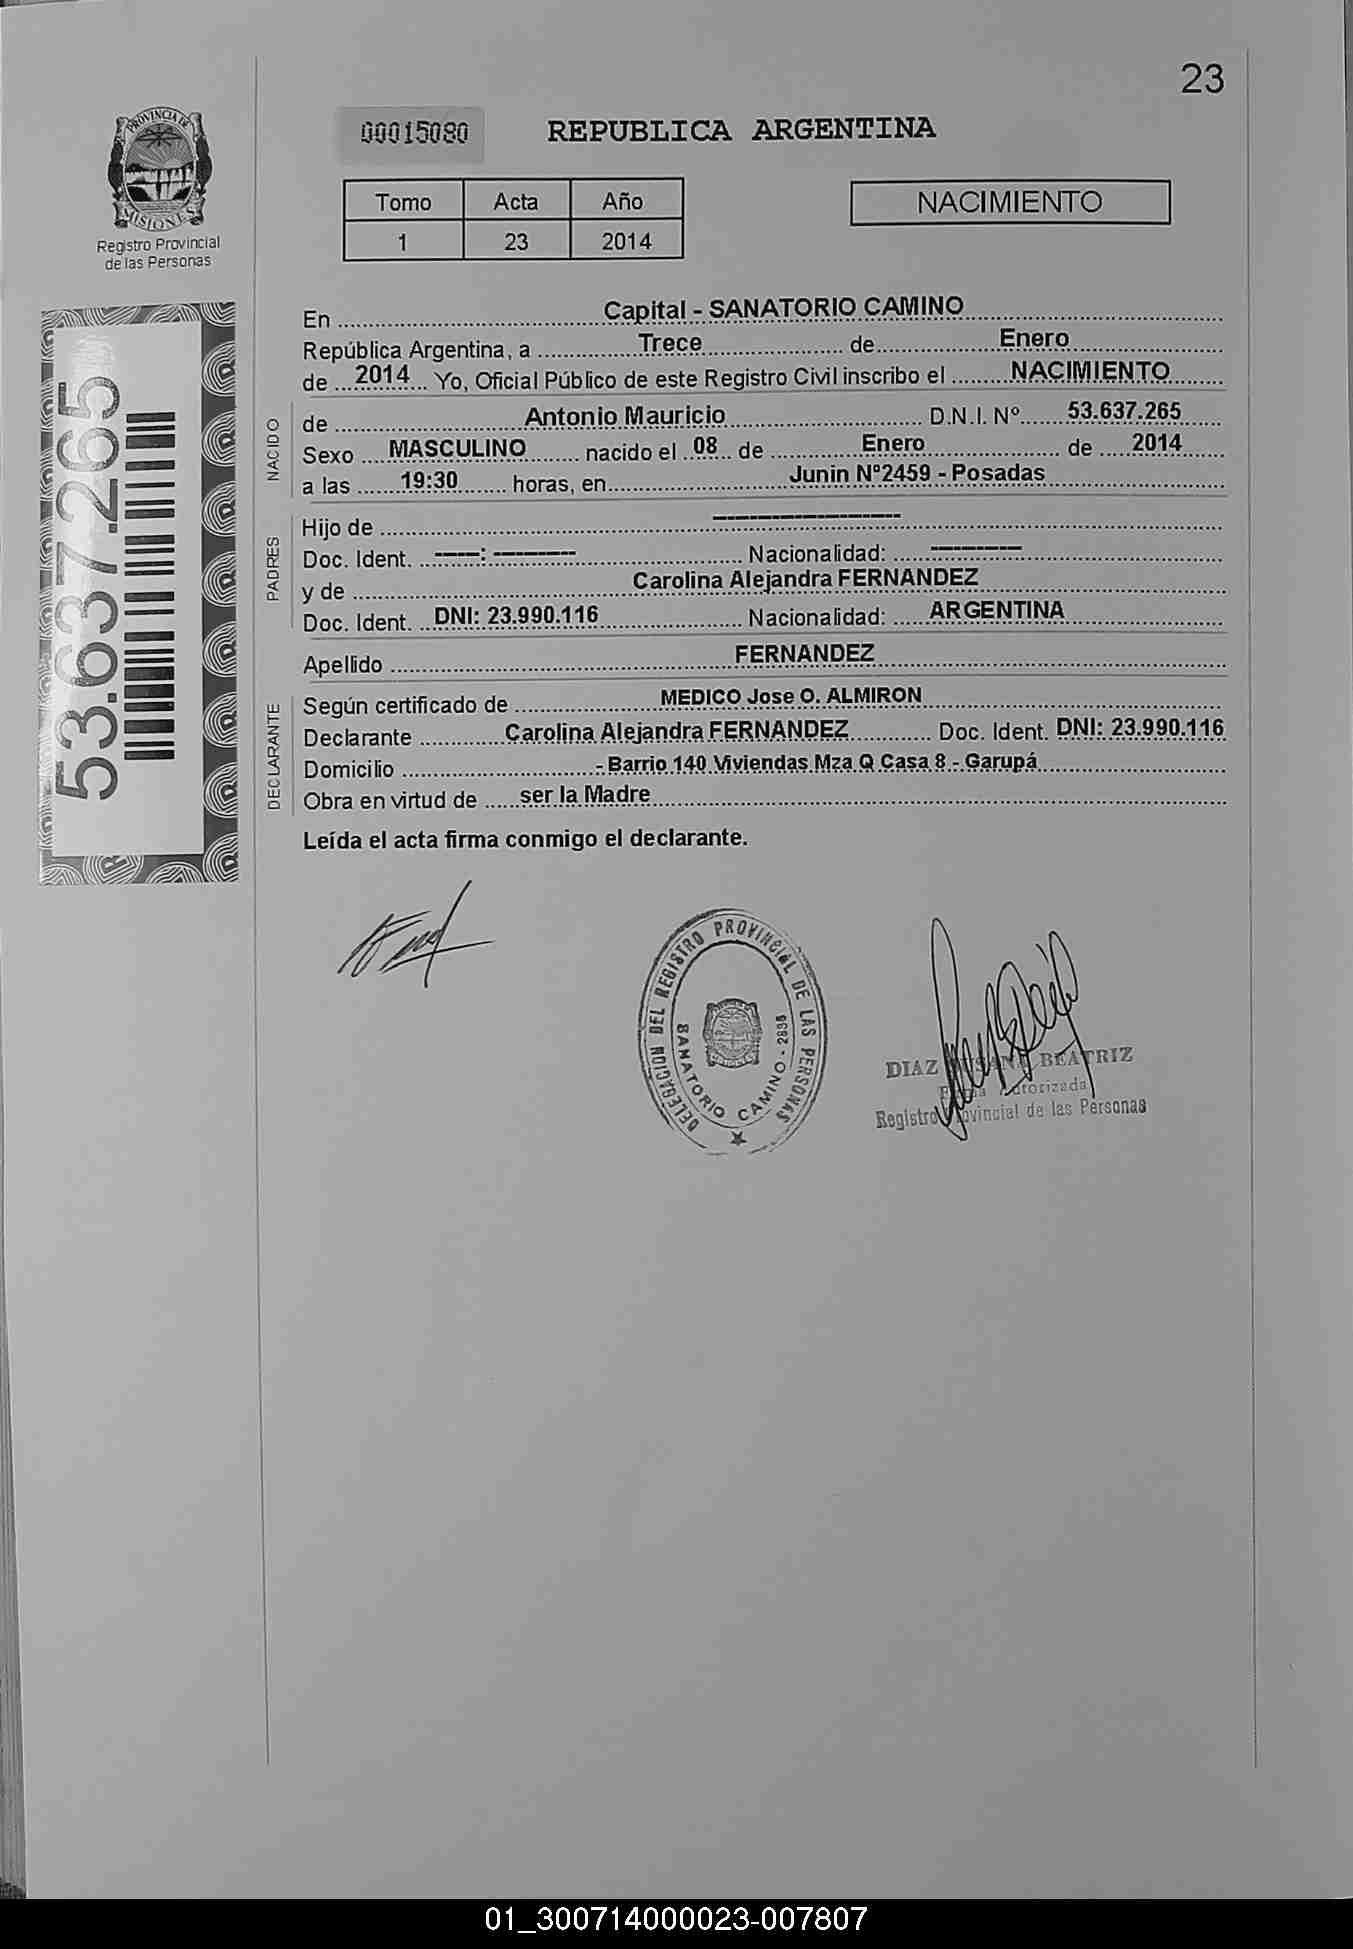 23
PROVINCIA DE
MISIONES
Registro Provincial
de las Personas
00015080
REPUBLICA ARGENTINA
Tomo Acta Año
1 23 2014
NACIMIENTO
53.637.265
En Capital - SANATORIO CAMINO
República Argentina, a Trece de Enero
de 2014 Yo, Oficial Público de este Registro Civil inscribo el NACIMIENTO
NACIDO
de Antonio Mauricio D.N.I. Nº 53.637.265
Sexo MASCULINO nacido el 08 de Enero de 2014
a las 19:30 horas, en Junin Nº2459 - Posadas
PADRES
Hijo de --------------------
Doc. Ident. -----: --------- Nacionalidad: ----------
y de Carolina Alejandra FERNANDEZ
Doc. Ident. DNI: 23.990.116 Nacionalidad: ARGENTINA
Apellido FERNANDEZ
DECLARANTE
Según certificado de MEDICO Jose O. ALMIRON
Declarante Carolina Alejandra FERNANDEZ Doc. Ident. DNI: 23.990.116
Domicilio - Barrio 140 Viviendas Mza Q Casa 8 - Garupá
Obra en virtud de ser la Madre
Leída el acta firma conmigo el declarante.
DELEGACION DEL REGISTRO PROVINCIAL DE LAS PERSONAS
SANATORIO CAMINO - 2898
DIAZ SUSANA BEATRIZ
Firma Autorizada
Registro Provincial de las Personas
01_300714000023-007807